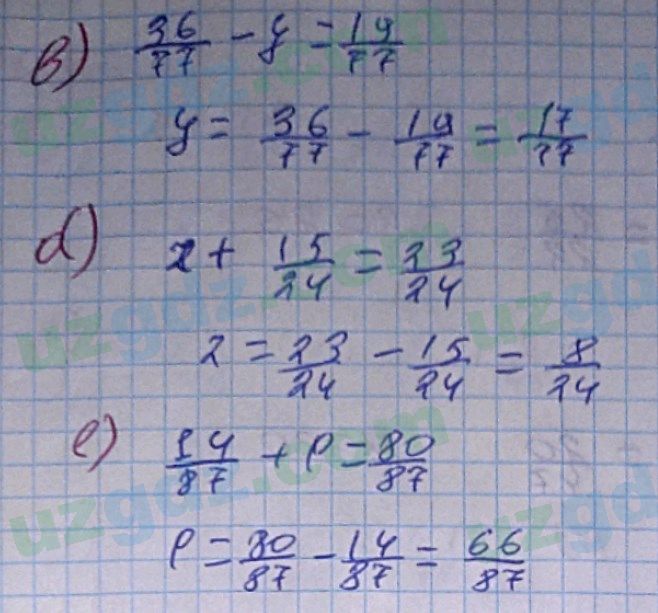 в) 36/77 - y = 19/77
y = 36/77 - 19/77 = 17/77
d) z + 15/24 = 23/24
z = 23/24 - 15/24 = 8/24
e) 14/87 + p = 80/87
p = 80/87 - 14/87 = 66/87
uzgdz.com